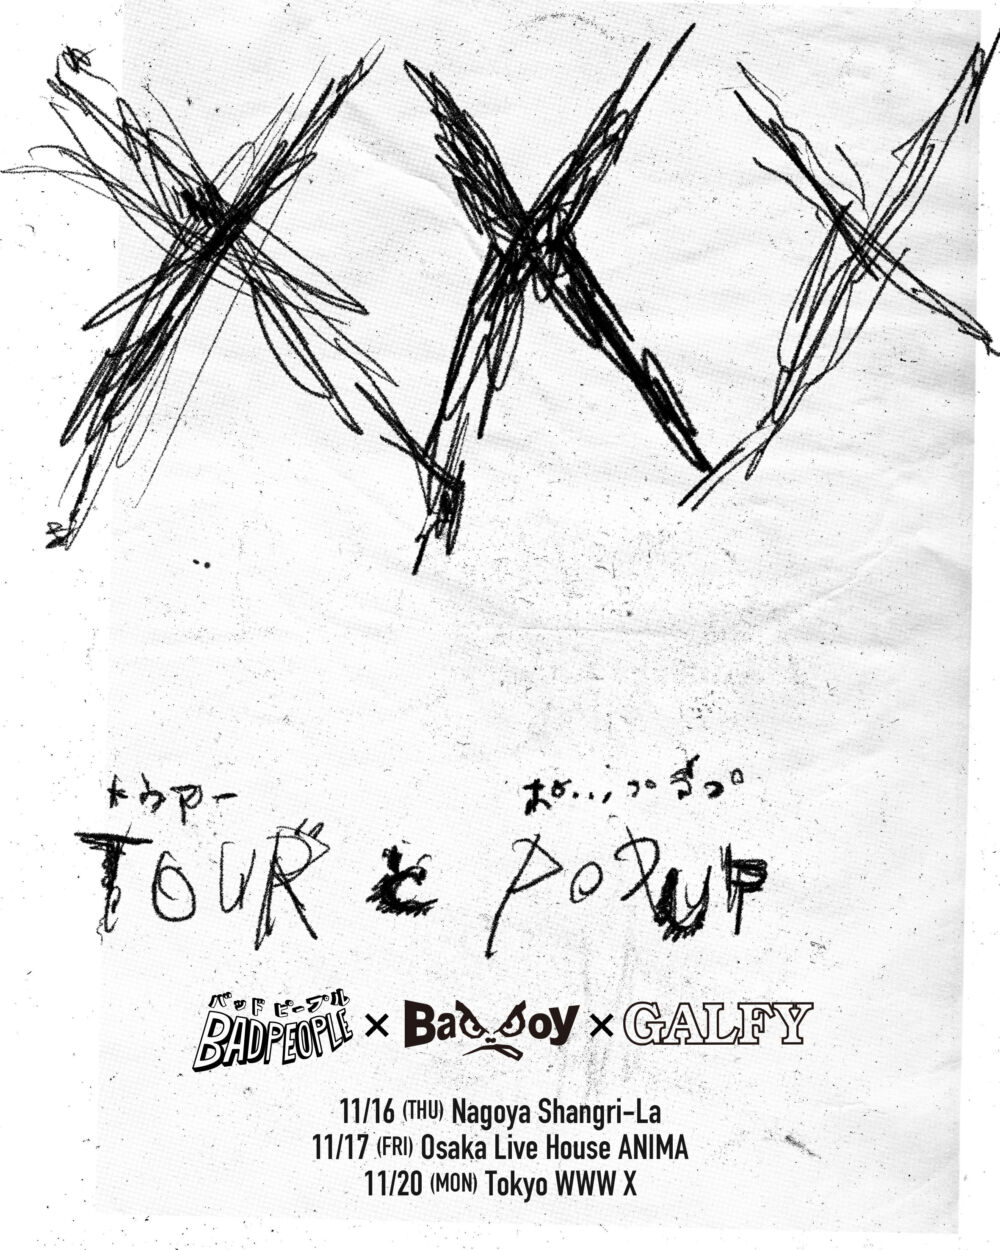 XXX
トゥアー
TOUR と POPUP
バッド ピープル
BADPEOPLE × Bad Boy × GALFY
11/16 (THU) Nagoya Shangri-La
11/17 (FRI) Osaka Live House ANIMA
11/20 (MON) Tokyo WWW X